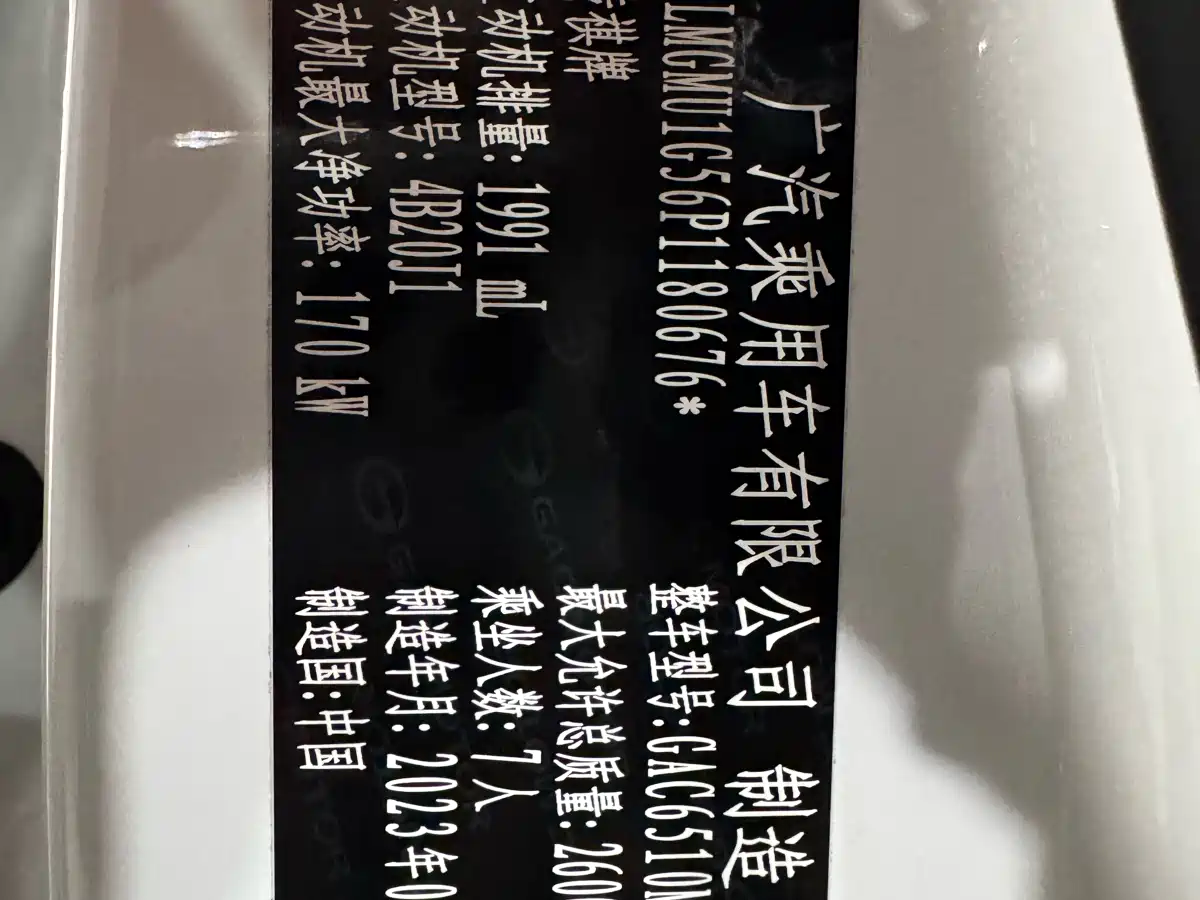 广汽乘用车有限公司 制造
LMGMU1G56P1180676*
整车型号:GAC6510
祺牌
最大允许总质量:260
动机排量:1991 mL
乘坐人数:7人
动机型号:4B20J1
制造年月:2023年0
动机最大净功率:170 kW
制造国:中国